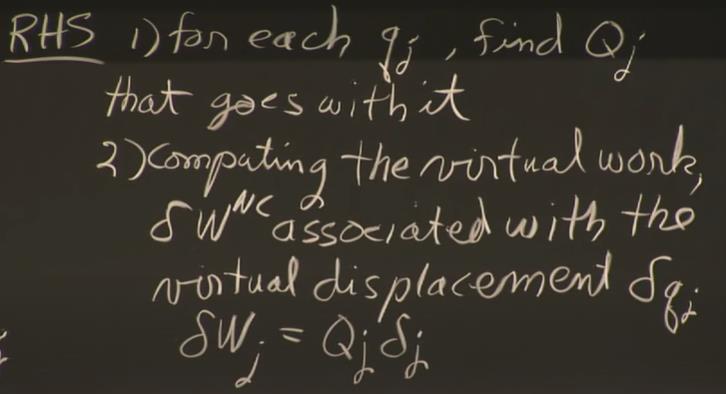 RHS 1) for each qj, find Qj
that goes with it
2) Computing the virtual work,
δW^NC associated with the
virtual displacement δqj
δWj = Qj δj